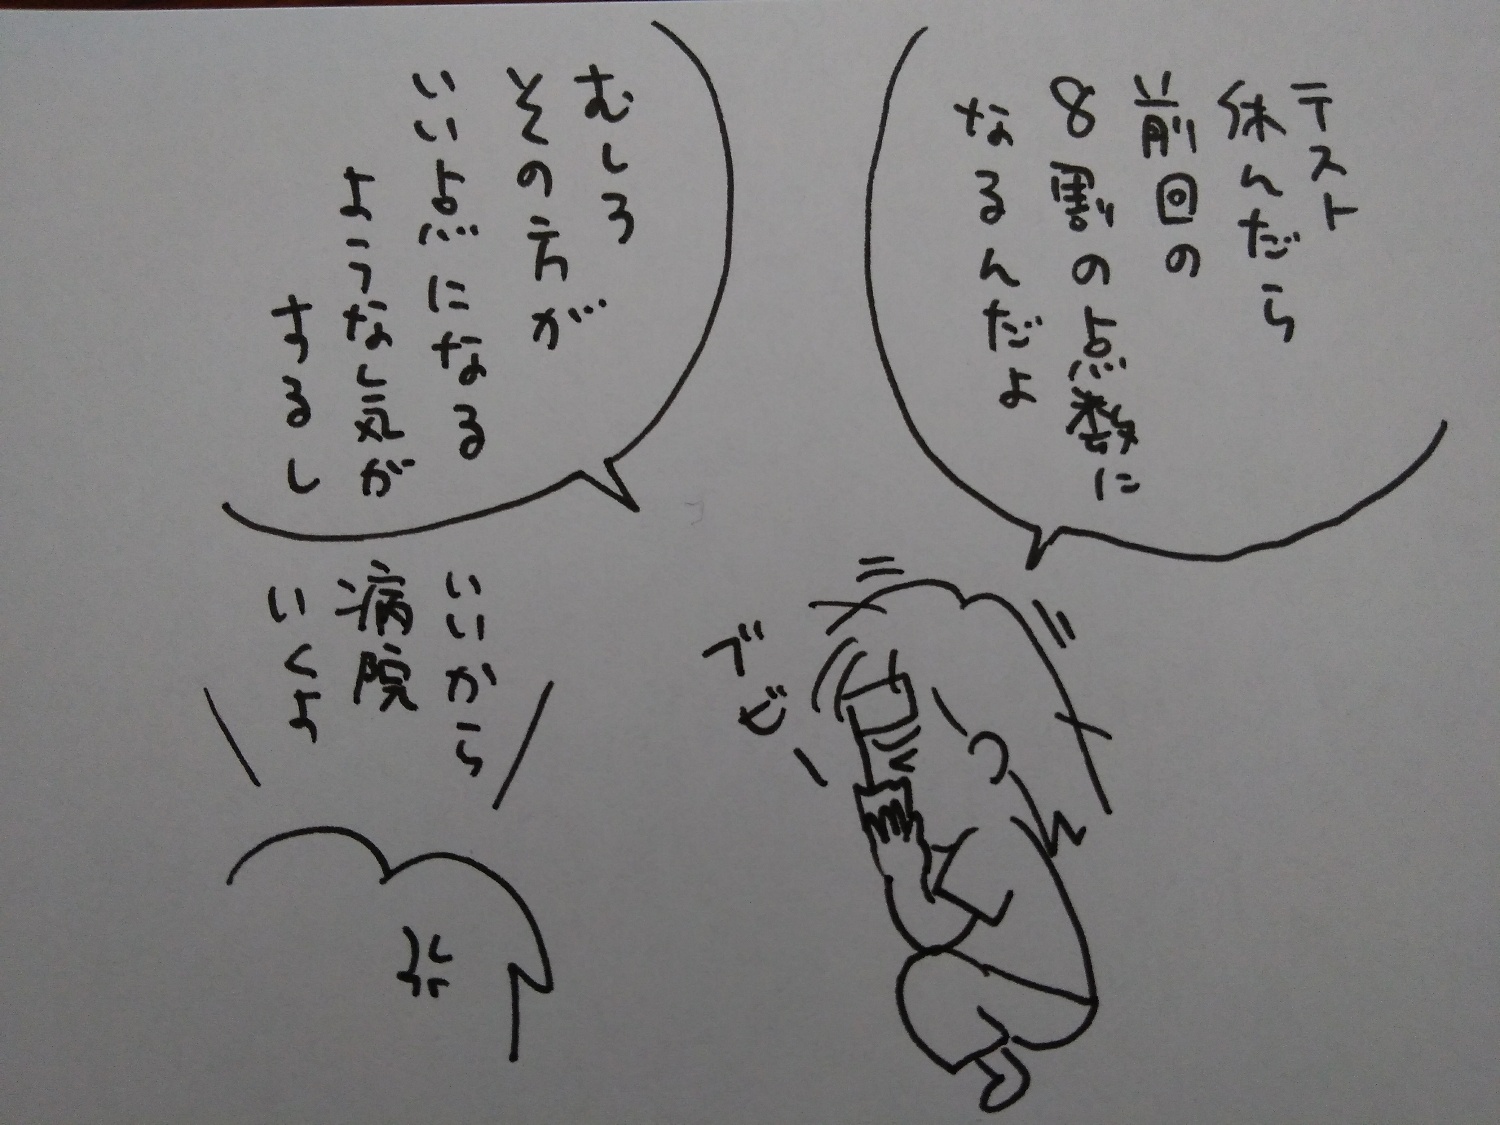 テスト
休んだら
前回の
8割の点数に
なるんだよ
むしろ
その方が
いい点になる
ような気が
するし
いいから
病院
いくよ